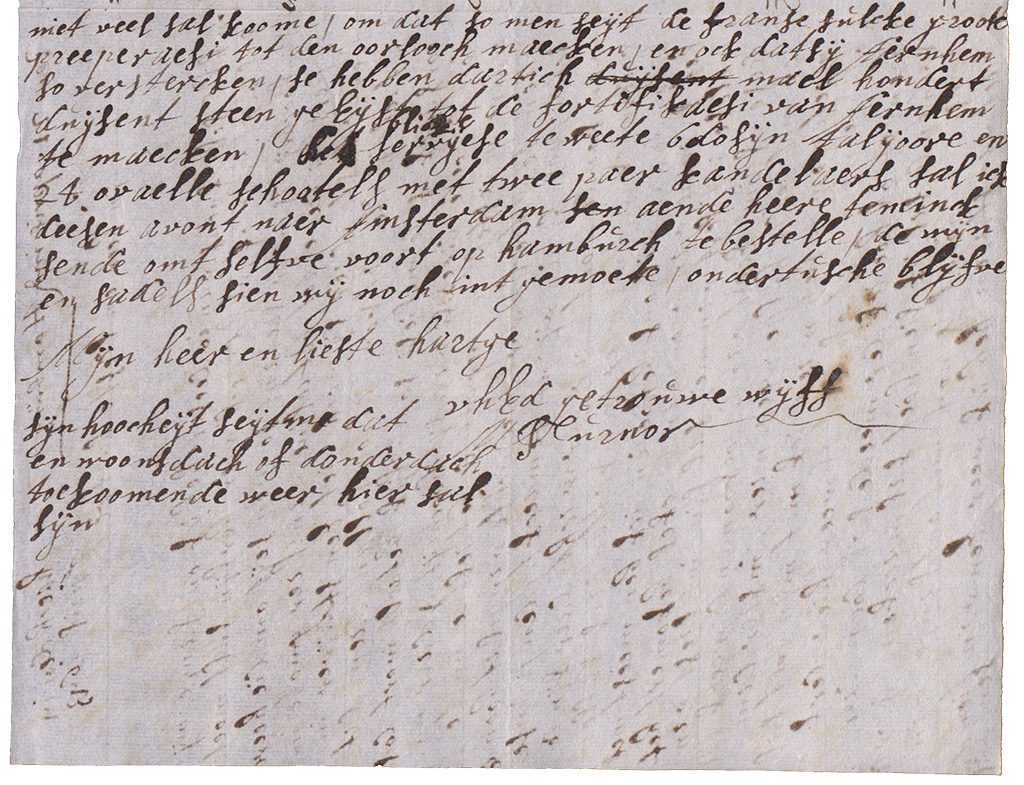 niet veel sal koome, om dat so men seyt de franse sulcke groote
preeperaesi tot den oorlooch maecken, en ock dat sy fernhem
so verstercken, se hebben dartich duijsent mael hondert
duijsent steen gekijst tot de fortifikaesi van fernhem
te maecken, het blicke servijese te weete 6 dosijn talyoore en
24 ovaelle schootels met twee paer kandelaers sal ick
deesen avont naer Amsterdam sen aende heere teminck
sende omt selfve voort op hamburch te bestelle, de wijn
en sadels sien wij noch int gemoete, ondertusche blijfve
Mijn heer en liefste hartge
vhEd getrouwe wijff
M Turnor
sijn hoocheijt seyt me dat
en woonsdach of donderdach
toekoomende weer hier sal
sijn